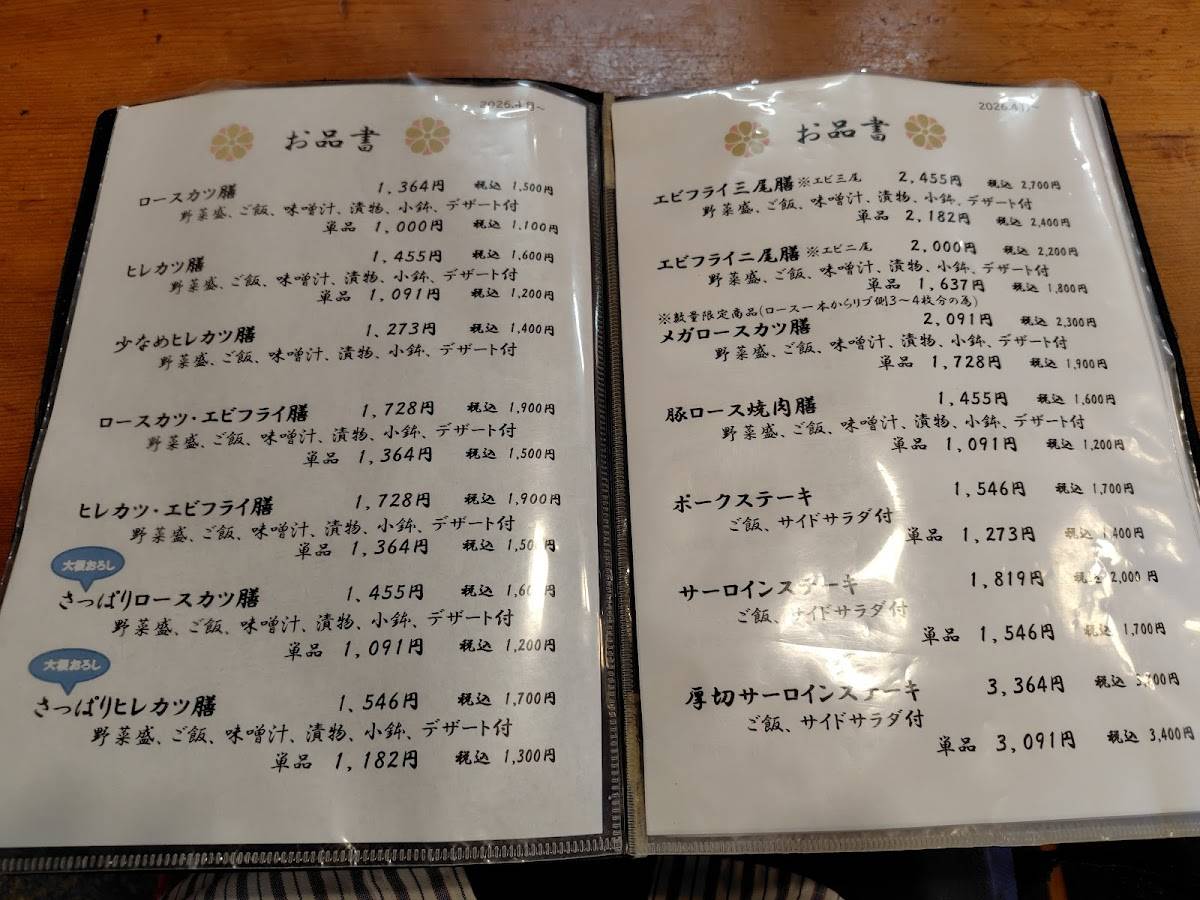 2026.4月～
お品書
ロースカツ膳 1,364円 税込 1,500円
野菜盛、ご飯、味噌汁、漬物、小鉢、デザート付
単品 1,000円 税込 1,100円
ヒレカツ膳 1,455円 税込 1,600円
野菜盛、ご飯、味噌汁、漬物、小鉢、デザート付
単品 1,091円 税込 1,200円
少なめヒレカツ膳 1,273円 税込 1,400円
野菜盛、ご飯、味噌汁、漬物、小鉢、デザート付
ロースカツ・エビフライ膳 1,728円 税込 1,900円
野菜盛、ご飯、味噌汁、漬物、小鉢、デザート付
単品 1,364円 税込 1,500円
ヒレカツ・エビフライ膳 1,728円 税込 1,900円
野菜盛、ご飯、味噌汁、漬物、小鉢、デザート付
単品 1,364円 税込 1,500円
大根おろし
さっぱりロースカツ膳 1、455円 税込 1,600円
野菜盛、ご飯、味噌汁、漬物、小鉢、デザート付
単品 1,091円 税込 1,200円
大根おろし
さっぱりヒレカツ膳 1、546円 税込 1,700円
野菜盛、ご飯、味噌汁、漬物、小鉢、デザート付
単品 1,182円 税込 1,300円
2026.4月～
お品書
エビフライ三尾膳 ※エビ三尾 2,455円 税込 2,700円
野菜盛、ご飯、味噌汁、漬物、小鉢、デザート付
単品 2,182円 税込 2,400円
エビフライ二尾膳 ※エビ二尾 2,000円 税込 2,200円
野菜盛、ご飯、味噌汁、漬物、小鉢、デザート付
単品 1,637円 税込 1,800円
※数量限定商品(ロース一本からリブ側3～4枚分の為)
メガロースカツ膳 2,091円 税込 2,300円
野菜盛、ご飯、味噌汁、漬物、小鉢、デザート付
単品 1,728円 税込 1,900円
豚ロース焼肉膳 1,455円 税込 1,600円
野菜盛、ご飯、味噌汁、漬物、小鉢、デザート付
単品 1,091円 税込 1,200円
ポークステーキ 1,546円 税込 1,700円
ご飯、サイドサラダ付
単品 1,273円 税込 1,400円
サーロインステーキ 1,819円 税込 2,000円
ご飯、サイドサラダ付
単品 1,546円 税込 1,700円
厚切サーロインステーキ 3,364円 税込 3,700円
ご飯、サイドサラダ付
単品 3,091円 税込 3,400円